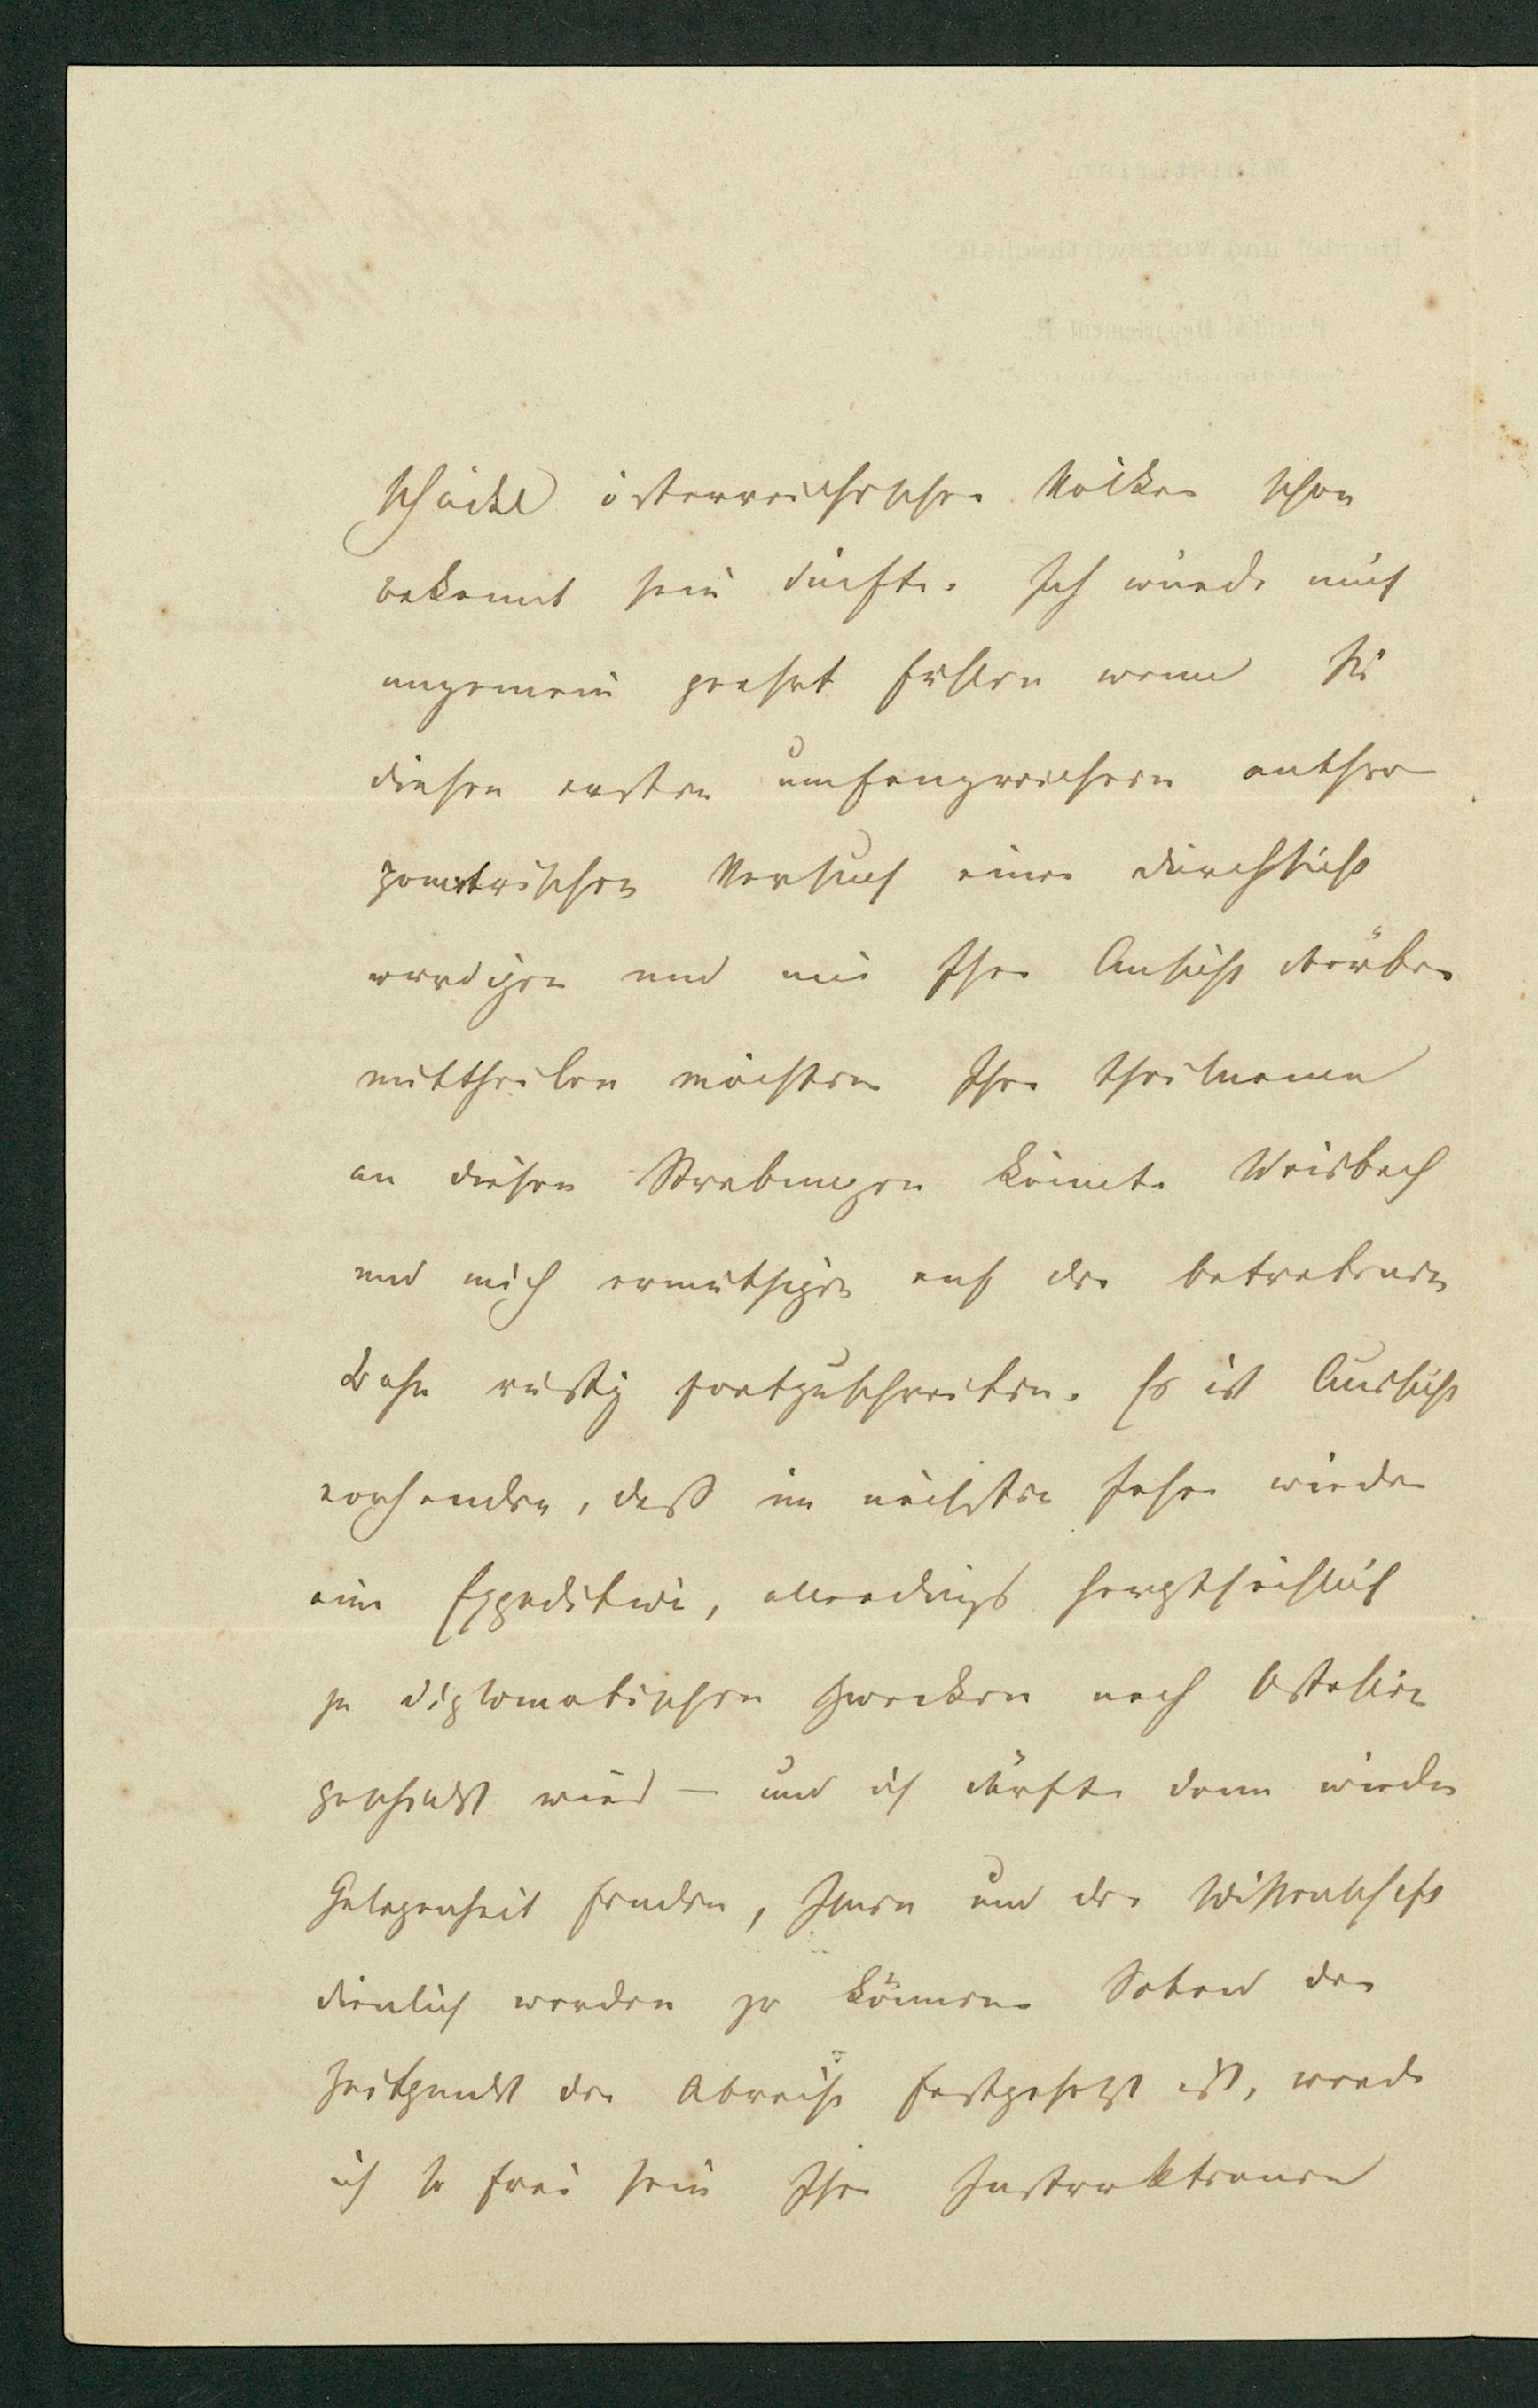 schädel österreichischer Völker schon
bekannt sein dürfte. Ich würde mich
ungemein geehrt fühlen wenn Sie
diesen ersten umfangreichern anthro
pometrischen Versuch einer Durchsicht
würdigen und mir Ihre Ansicht darüber
mittheilen möchten. Ihre Theilname
an diesen Strebungen könnte Weisbach
und mich ermuthigen auf der betretenen
Bahn rüstig fortzuschreiten. Es ist Aussicht
vorhanden, daß im nächsten Jahre wieder
eine Expedition, allerdings hauptsächlich
zu diplomatischen Zwecken nach Ostasien
geschickt wird – und ich dürfte dann wieder
Gelegenheit finden, Ihnen und der Wissenschaft
dienlich werden zu können. Sobald der
Zeitpunkt der Abreise festgesetzt ist, werde
ich so frei sein Ihre Instruktionen